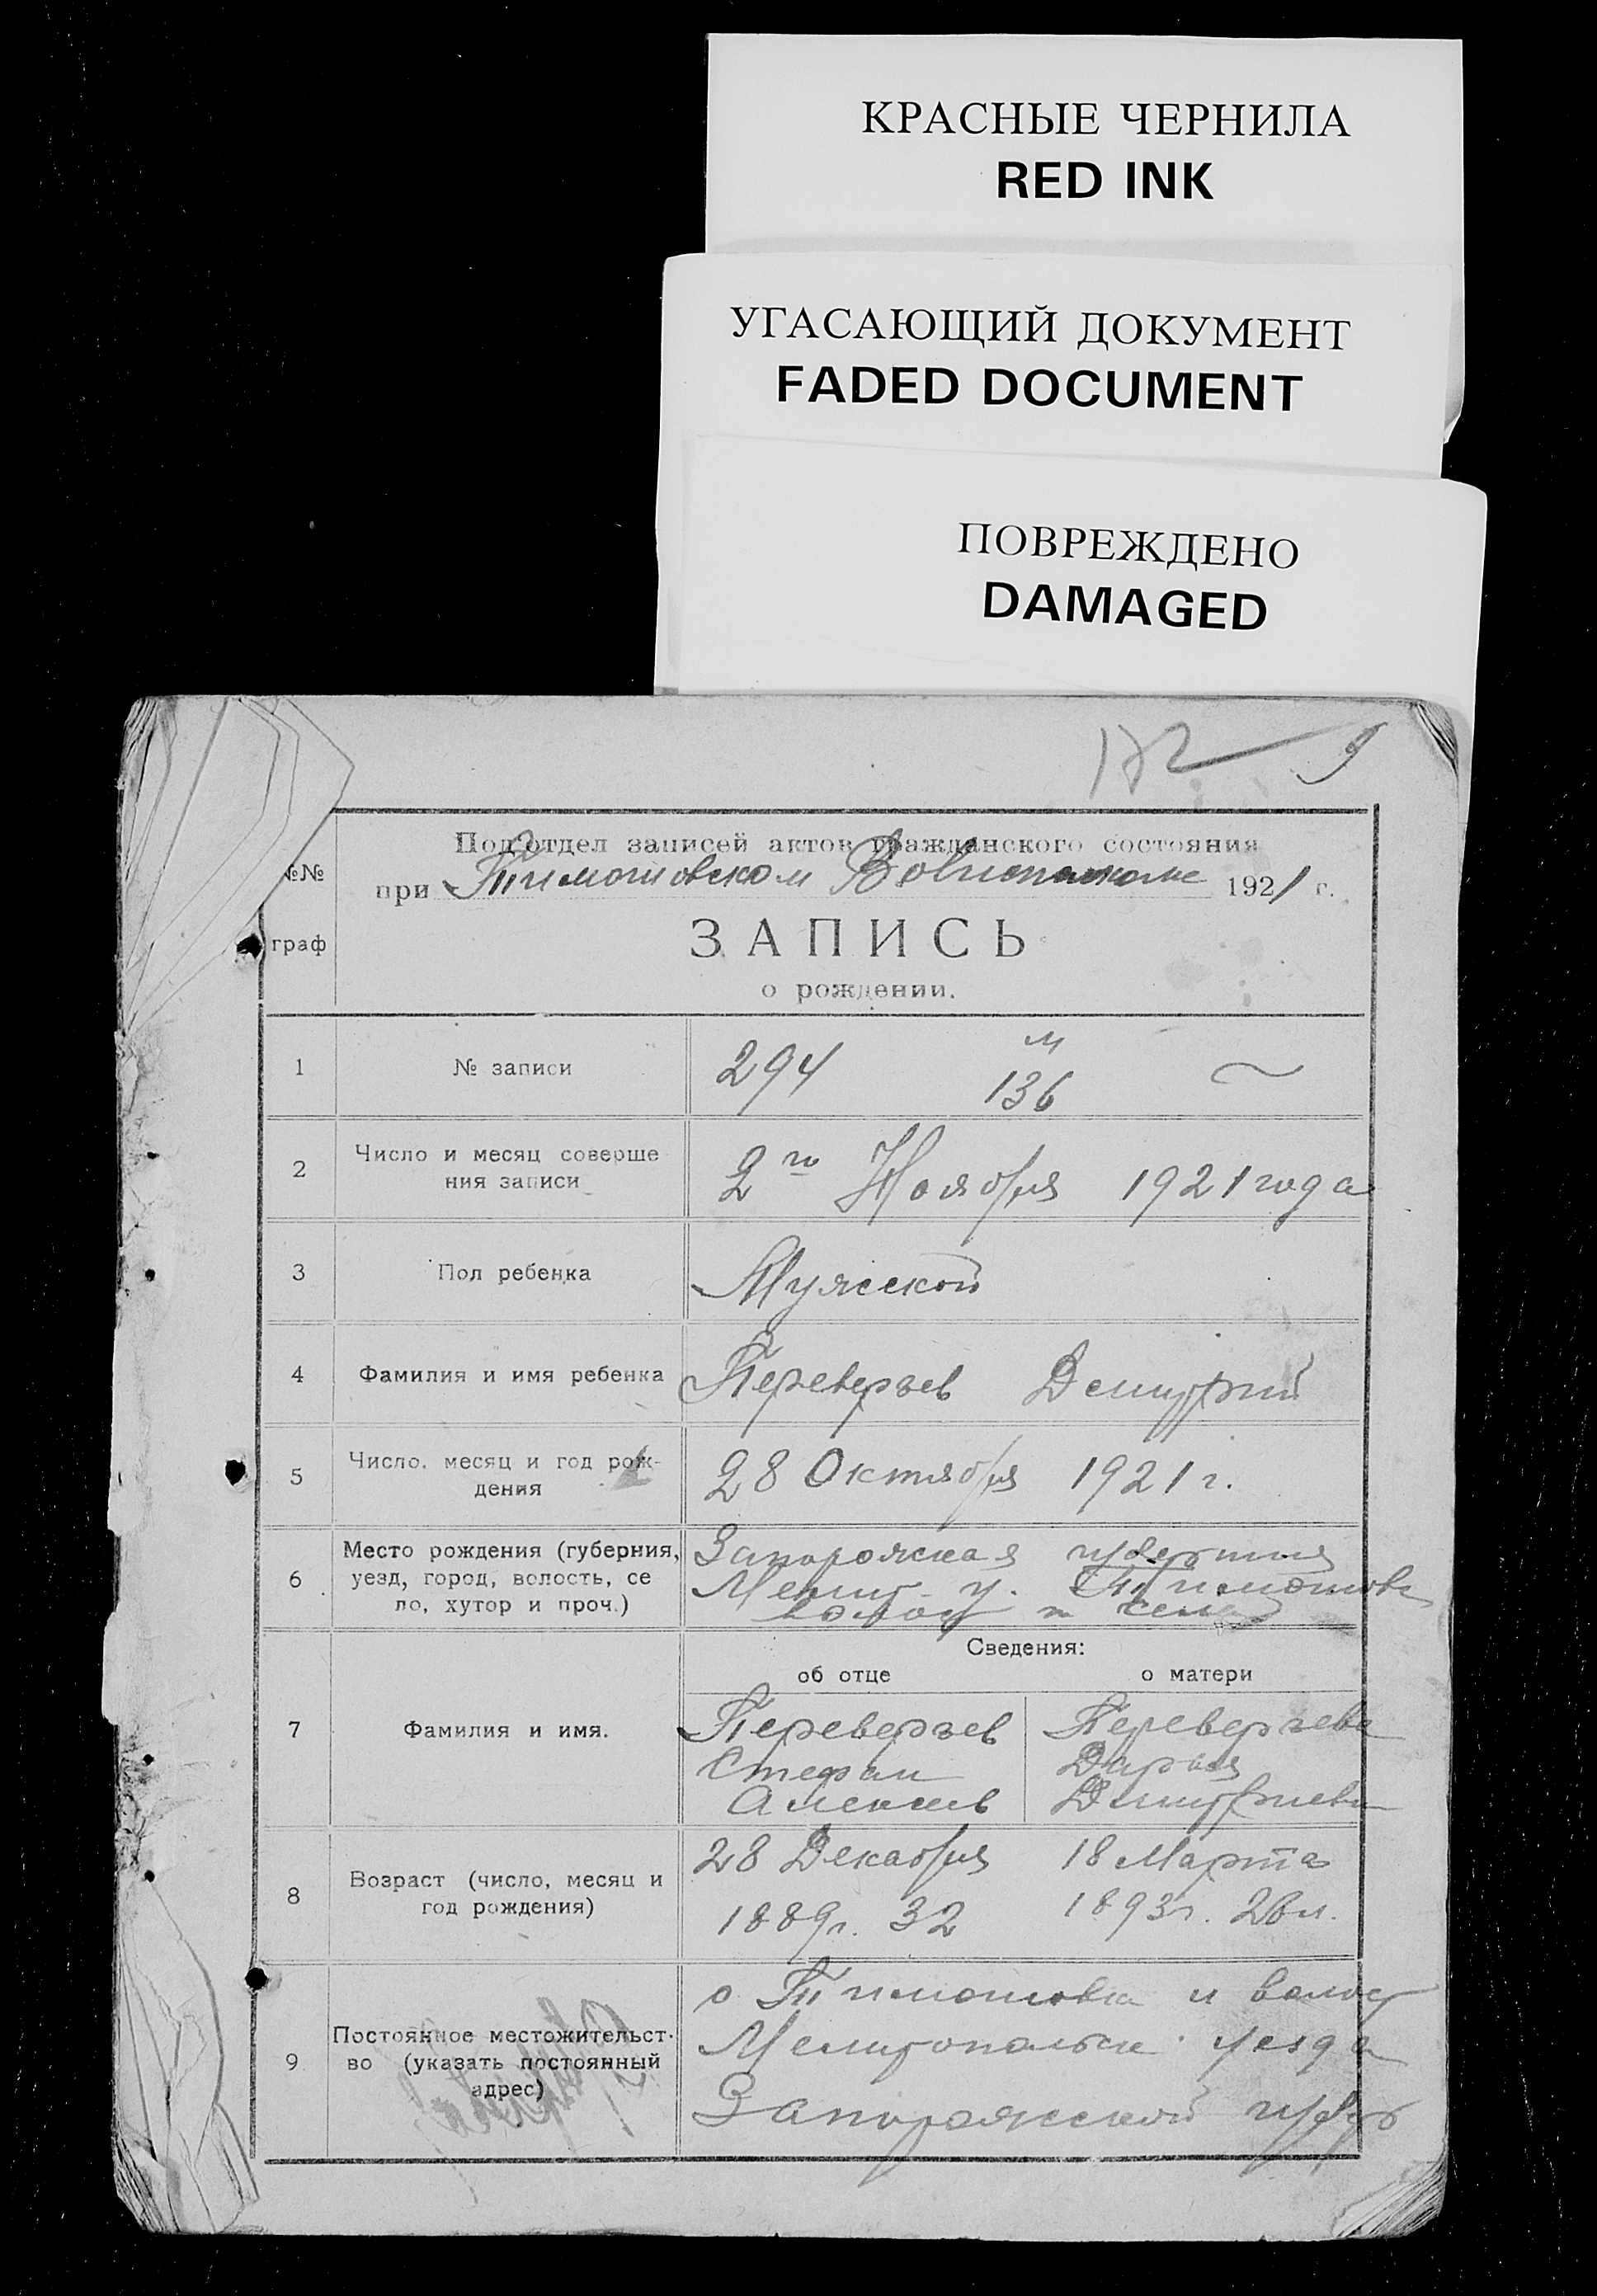 КРАСНЫЕ ЧЕРНИЛА
RED INK
УГАСАЮЩИЙ ДОКУМЕНТ
FADED DOCUMENT
ПОВРЕЖДЕНО
DAMAGED
Под'отдел записей актов гражданского состояния
при Тимошовском Волисполкоме 1921 г.
№№
граф
ЗАПИСЬ
о рождении.
1 № записи 294 м 136
2 Число и месяц соверше
ния записи 2го Ноября 1921 года
3 Пол ребенка Мужской
4 Фамилия и имя ребенка Переверзев Дмитрий
5 Число, месяц и год рож-
дения 28 Октября 1921 г.
6 Место рождения (губерния, Запорожская губерния
уезд, город, волость, се Мелит. у. Тимошовк
ло, хутор и проч.) волост и села
Сведения:
об отце о матери
7 Фамилия и имя. Переверзев Переверзева
Стефан Дарья
Алексеев Дмитриева
8 Возраст (число, месяц и 28 Декабря 18 Марта
год рождения) 1889г. 32 1893г. 28 л.
9 Постоянное местожительст-
во (указать постоянный
адрес)
с. Тимошовка и волост
Мелитопольск уезда
Запорожской губер